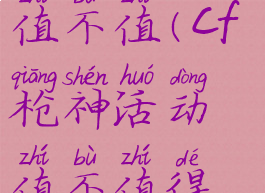 值不值(Cf
qiāng shén huó dòng
枪神活动
zhí bù zhí dé
值不值得